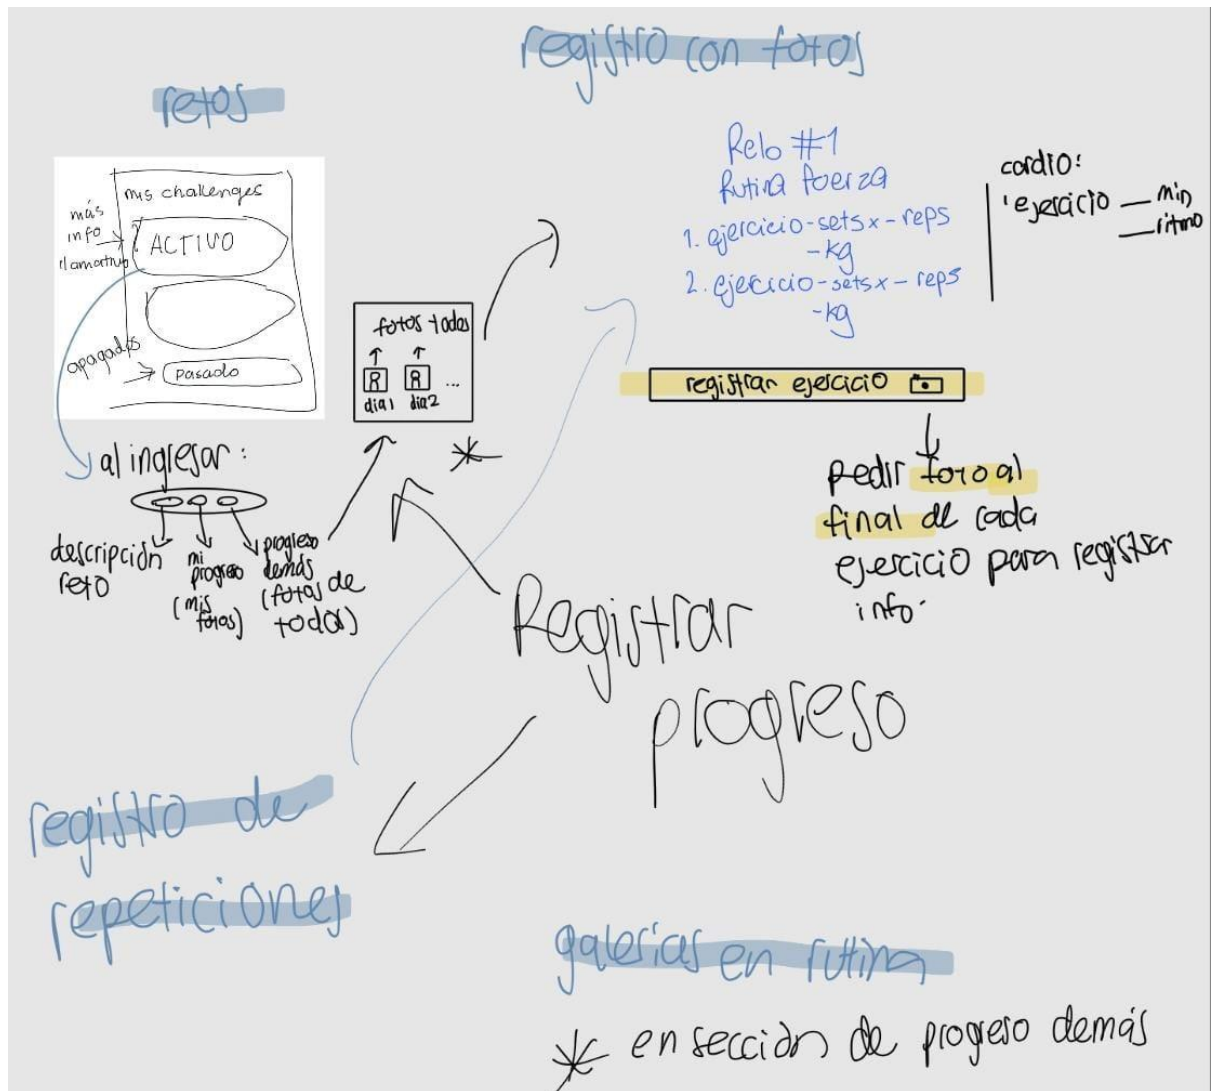 registro con fotos
retos
mis challenges
más
info
llamativo
ACTIVO
apagados
Pasado
al ingresar:
descripción
reto
mi
progreso
(mis
fotos)
progreso
demás
(fotos de
todos)
fotos todos
R R ...
dia1 dia2
Reto #1
Rutina fuerza
1. ejercicio-sets x - reps
- kg
2. ejercicio-sets x - reps
- kg
cardio:
ejercicio — min
— ritmo
registrar ejercicio
pedir foto al
final de cada
ejercicio para registrar
info.
Registrar
progreso
registro de
repeticiones
galerías en rutina
* en sección de progreso demás